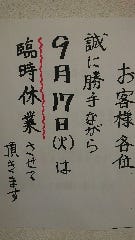 お客様各位
誠に勝手ながら
9月17日(火)は
臨時休業させて
頂きます